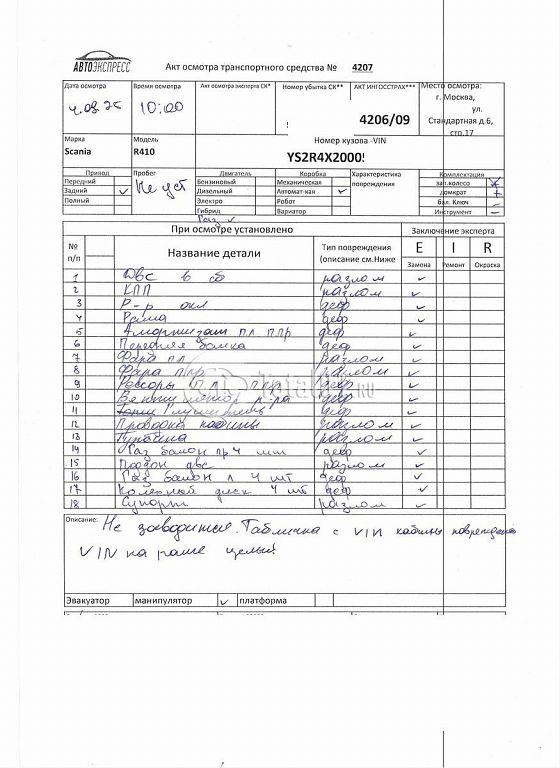 АВТОЭКСПРЕСС
Акт осмотра транспортного средства № 4207
Дата осмотра Время осмотра Акт осмотра эксперта СК* Номер убытка СК** АКТ ИНГОССТРАХ*** Место осмотра:
10:00 4206/09 г. Москва,
ул.
Стандартная д.6,
стр.17
Марка Модель Номер кузова -VIN
Scania R410 YS2R4X2000
Привод Пробег Двигатель Коробка Характеристика повреждения Комплектация
Передний Не уст Бензиновый Механическая зап.колесо
Задний Дизельный Автомат-кая домкрат
Полный Электро Робот бал. Ключ
Гибрид Вариатор Инструмент
Газ
При осмотре установлено Заключение эксперта
№ п/п Название детали Тип повреждения (описание см.Ниже E I R
Замена Ремонт Окраска
1 ДВС в сб разлом
2 КПП разлом
3 Р-р охл деф
4 Рама деф
5 Амортизат пл ппр деф
6 Передняя балка деф
7 Фара пл разлом
8 Фара ппр разлом
9 Рессоры п л п пр деф
10 р-ра деф
11 Глушитель деф
12 Проводка кабины разлом
13 Турбина разлом
14 Газ балон пр 4 шт деф
15 Поддон двс разлом
16 Газ балон л 4 шт деф
17 Колесный диск 4 шт деф
18 Супорт разлом
Описание: Не заводится. Табличка с VIN кабины повреждена
VIN на раме целый
Эвакуатор манипулятор платформа